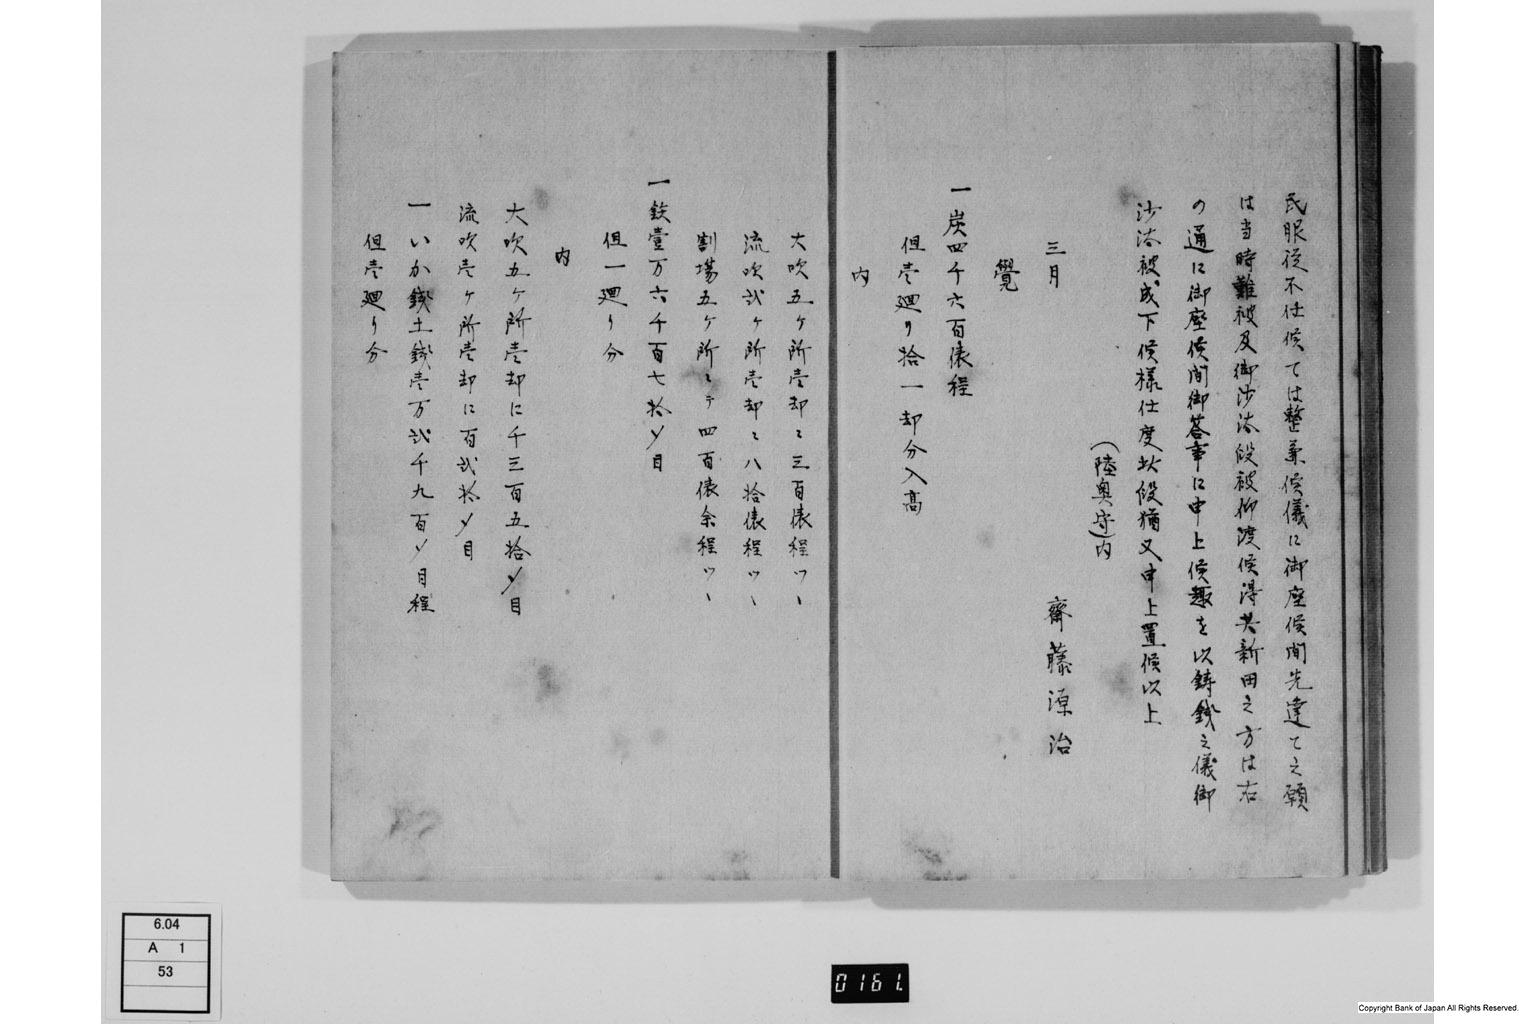 民服従不仕候ては整兼候儀に御座候間先達て之願
は当時難被及御沙汰段被仰渡候得共新田之方は右
の通に御座候間御答事に申上候趣を以鋳銭之儀御
沙汰被成下候様仕度此段猶又申上置候以上
(陸奥守内)
三月 齋藤源治
覺
一炭四千六百俵程
但壱廻り拾一却分入高
内
大吹五ヶ所壱却ニ三百俵程ツヽ
流吹弐ヶ所壱却ニ八拾俵程ツヽ
割場五ヶ所ニテ四百俵余程ツヽ
一鉄壹万六千百七拾〆目
但一廻り分
内
大吹五ヶ所壱却に千三百五拾〆目
流吹壱ヶ所壱却に百弐拾〆目
一いか銭土銭壱万弐千九百〆目程
但壱廻り分
6.04
A 1
53
0161.
Copyright Bank of Japan All Rights Reserved.